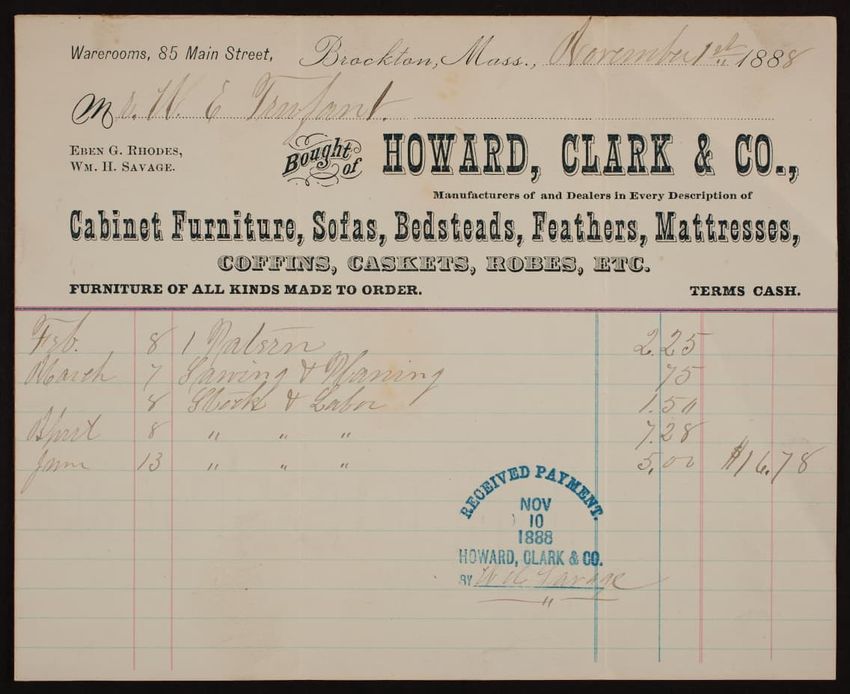 Warerooms, 85 Main Street, Brockton, Mass., November 1st 1888
Mr. W. E Trufant.
EBEN G. RHODES,
WM. H. SAVAGE.
Bought of HOWARD, CLARK & CO.,
Manufacturers of and Dealers in Every Description of
Cabinet Furniture, Sofas, Bedsteads, Feathers, Mattresses,
COFFINS, CASKETS, ROBES, ETC.
FURNITURE OF ALL KINDS MADE TO ORDER. TERMS CASH.
Feb. 8 1 2.25
March 7 Sawing & Planing 75
8 Stock & Labor 1.50
April 8 " " " 7.28
June 13 " " " 5.00 $16.78
RECEIVED PAYMENT.
NOV
10
1888
HOWARD, CLARK & CO.
BY W H Savage